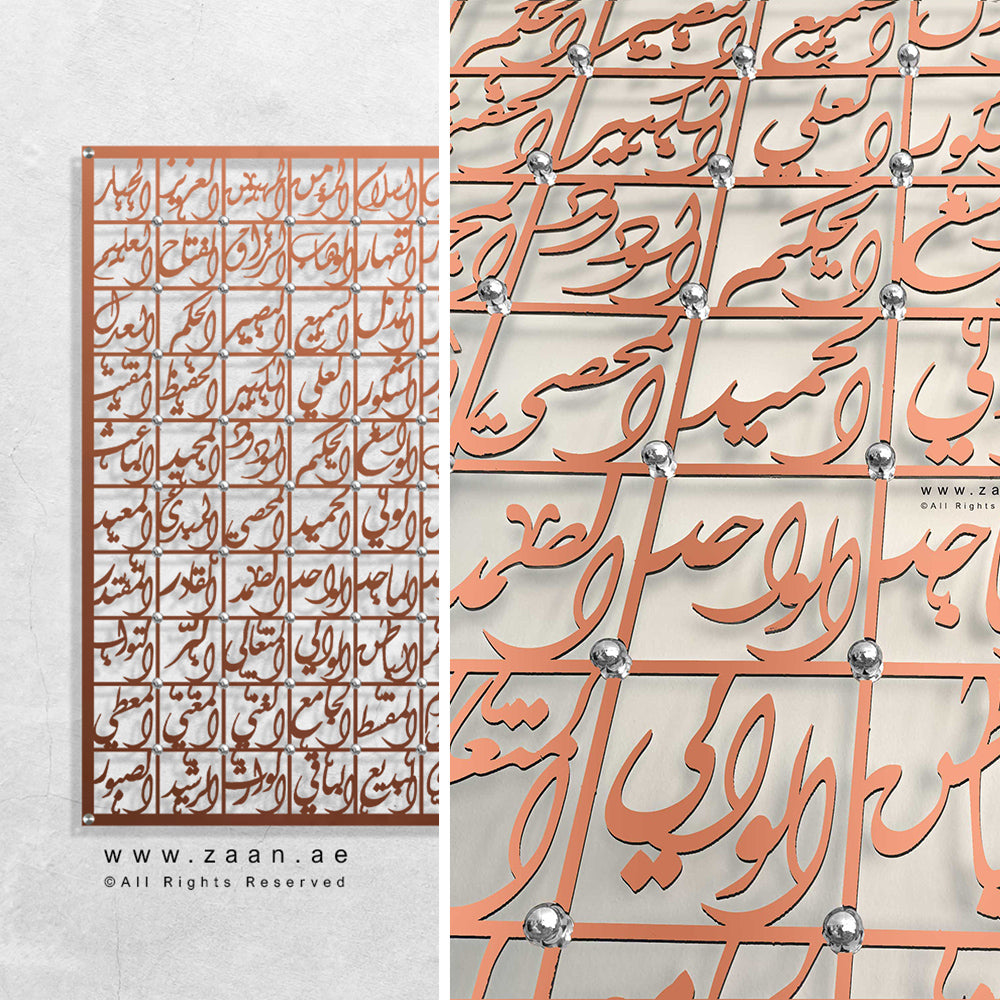 السلام المؤمن المهيمن العزيز الجبار
القهار الوهاب الرزاق الفتاح العليم
المذل السميع البصير الحكم العدل
الشكور العلي الكبير الحفيظ المقيت
الواسع الحكيم الودود المجيد الباعث
الولي الحميد المحصي المبدئ المعيد
الماجد الواحد الصمد القادر المقتدر
الباطن الوالي المتعالي البر التواب
المقسط الجامع الغني المغني المعطي
البديع الباقي الوارث الرشيد الصبور
www.zaan.ae
©All Rights Reserved
السميع البصير الحكم
العلي الكبير الحفيظ
الحكيم الودود
الحميد المحصي
www.zaa
©All Rights
الواحد الصمد
الوالي